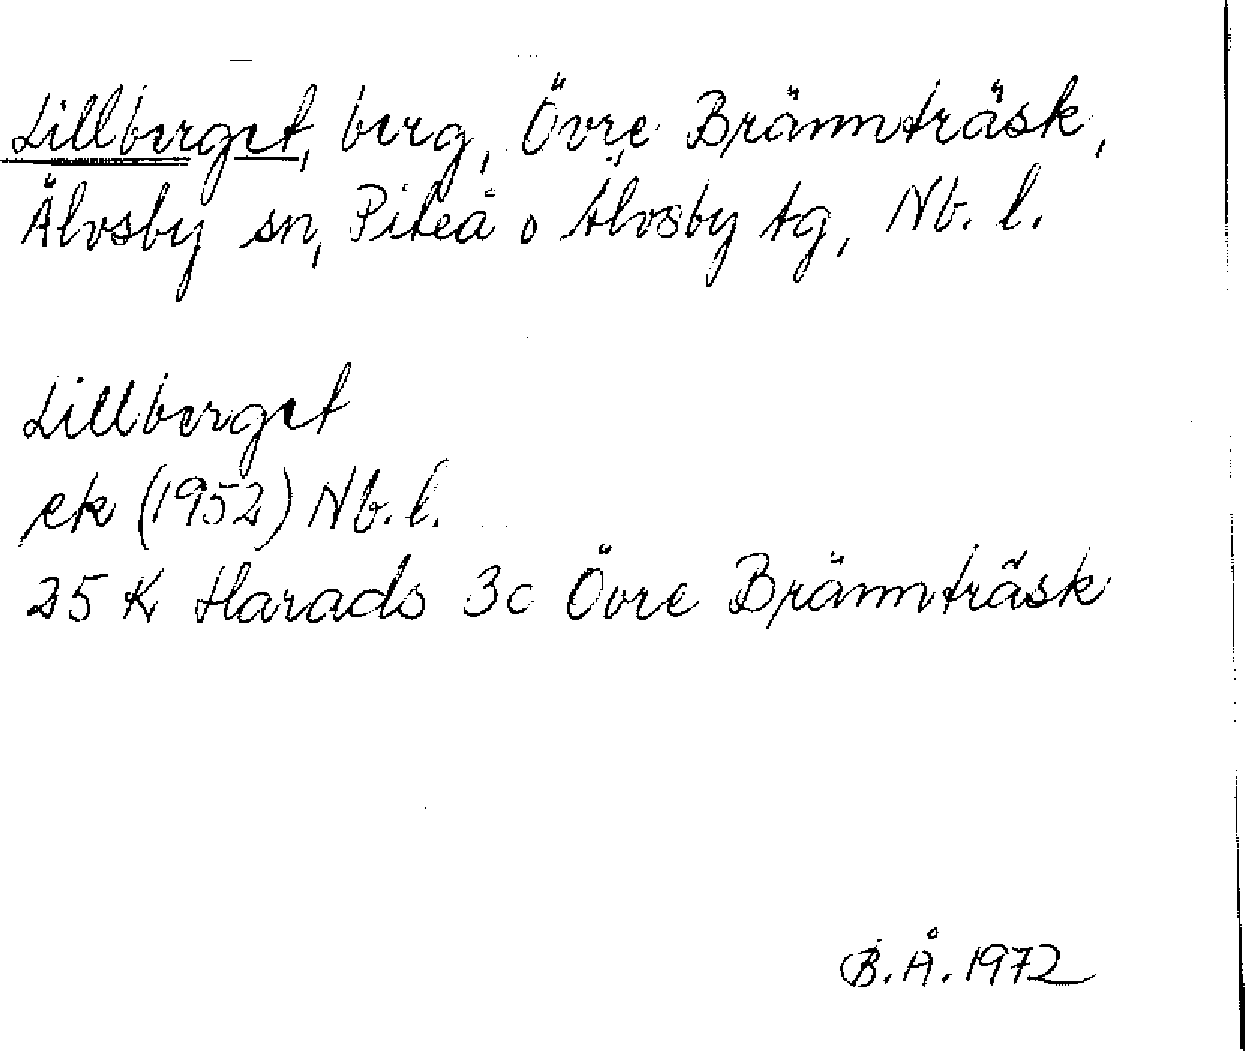 Lillberget, berg, Övre Brännträsk,
Älvsby sn, Piteå o Älvsby tg, Nb. l.
Lillberget
ek (1952) Nb. l.
25 K Harads 3c Övre Brännträsk
B. Å. 1972